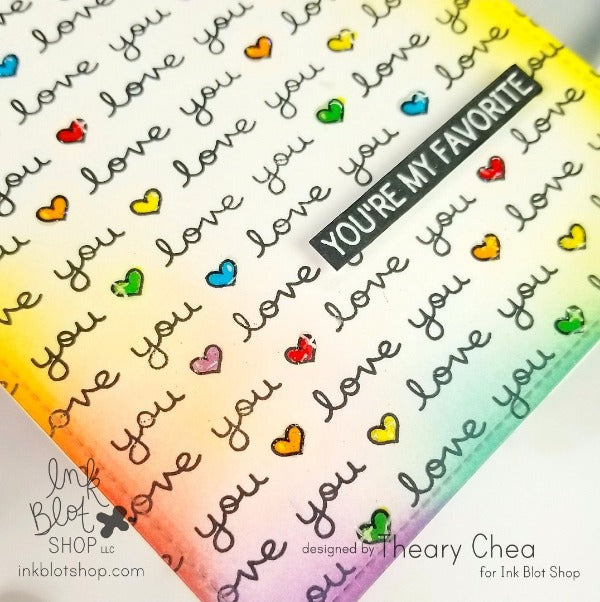 love you
you love you
love you love
you love you love
love you love you love
you love you love
love you love you
YOU'RE MY FAVORITE
you love you love
love you love you
love you love you
you love you
Ink
Blot
SHOP LLC
inkblotshop.com
designed by Theary Chea
for Ink Blot Shop